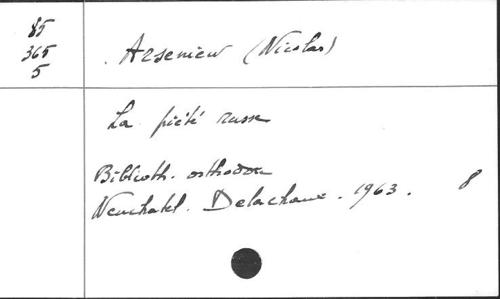 85
365
5
Arseniew (Nicolas)
La piété russe
Biblioth. orthodoxe
Neuchatel. Delachaux. 1963. 8